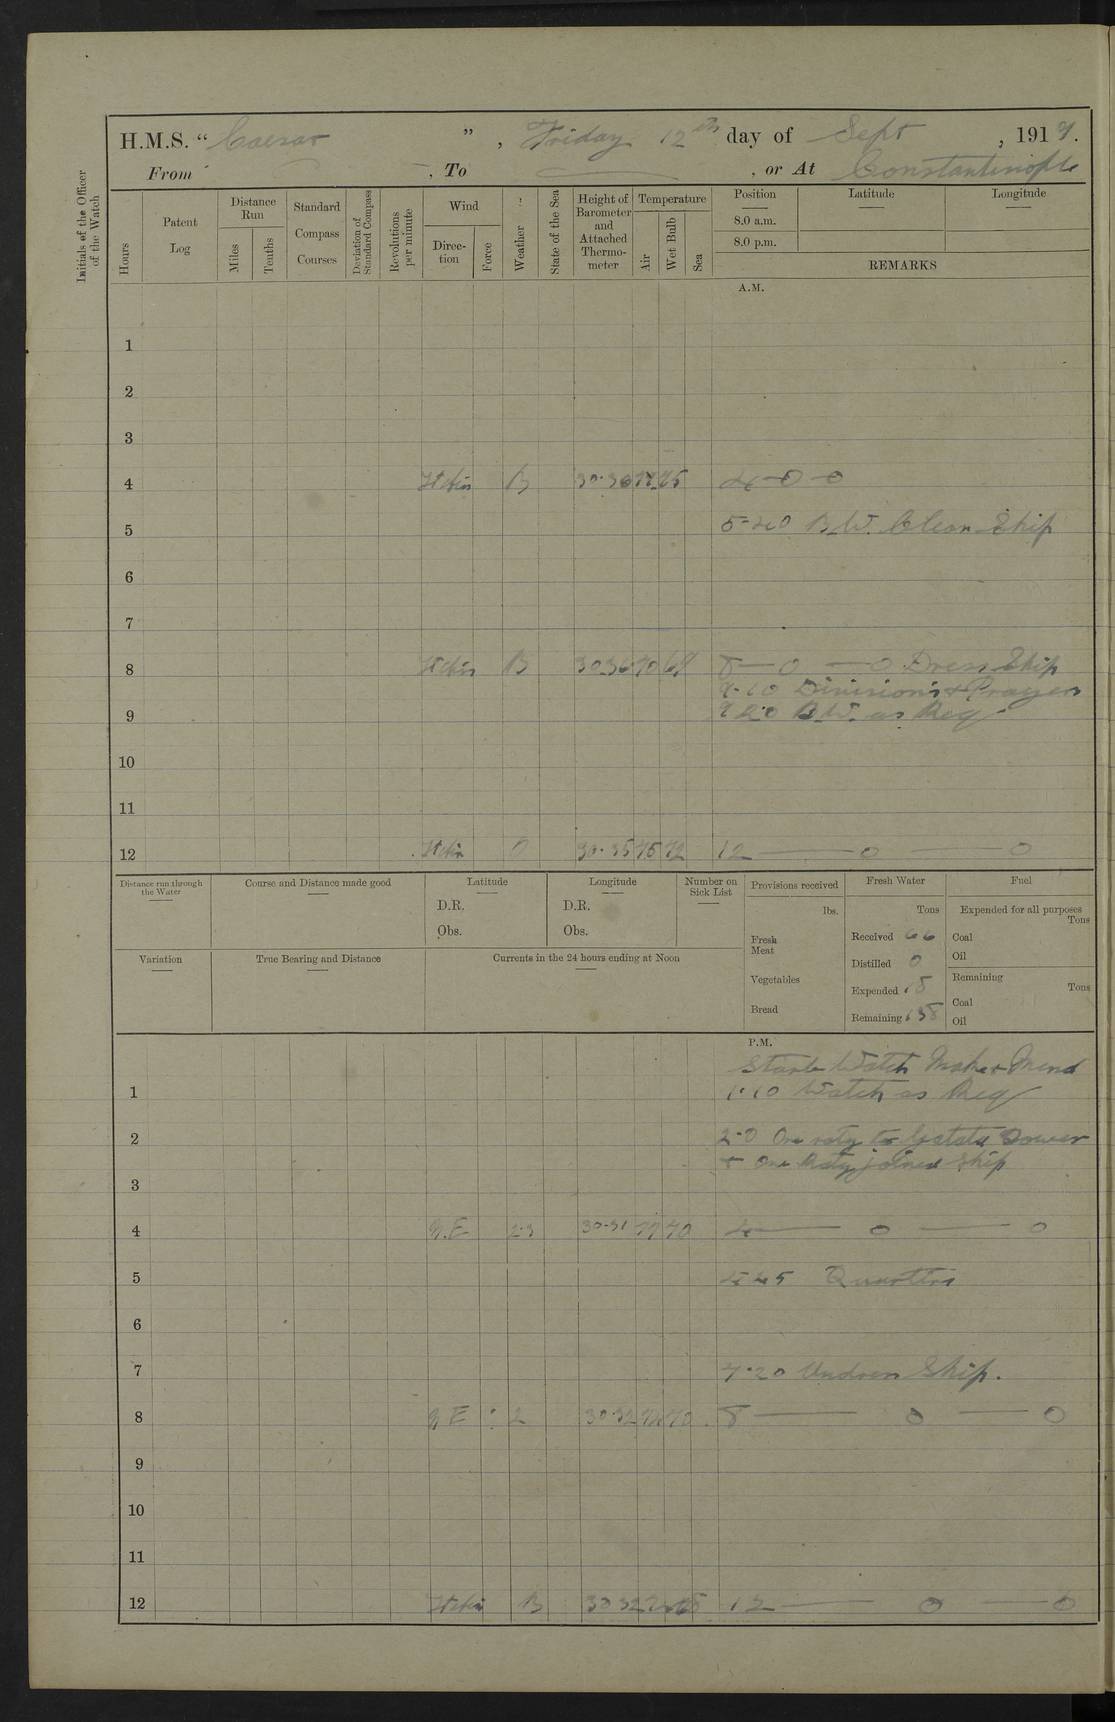 H.M.S. "Caesar", Friday 12th day of Sept, 1919.
From —, To —, or At Constantinople
Initials of the Officer of the Watch
Hours
Patent Log
Distance Run
Miles
Tenths
Standard Compass Courses
Deviation of Standard Compass
Revolutions per minute
Wind
Direction
Force
Weather
State of the Sea
Height of Barometer and Attached Thermometer
Temperature
Air
Wet Bulb
Sea
Position
Latitude
Longitude
8.0 a.m.
8.0 p.m.
REMARKS
A.M.
1
2
3
4 B 30.36 75 4—0—0
5 5-40 B.W. Clean Ship
6
7
8 B 30.36 70 68 8—0—0 Dress Ship
9-10 Divisions & Prayers
9 9.20 B.W. as Req
10
11
12 O 30.35 75 72 12—0—0
Distance run through the Water
Course and Distance made good
Latitude
D.R.
Obs.
Longitude
D.R.
Obs.
Number on Sick List
Provisions received
lbs.
Fresh Meat
Vegetables
Bread
Fresh Water
Tons
Received 66
Distilled 0
Expended 18
Remaining 138
Fuel
Expended for all purposes
Tons
Coal
Oil
Remaining
Tons
Coal
Oil
Variation
True Bearing and Distance
Currents in the 24 hours ending at Noon
P.M.
Starb Watch Make & Mend
1 1.10 Watch as Req
2 2-0 One raty to
& One Raty joined Ship
3
4 N.E 2.3 30.31 77 70 4—0—0
5 4.45 Quarters
6
7 7.20 Undress Ship.
8 N E 2 30.32 70 8—0—0
9
10
11
12 B 30 32 12—0—0